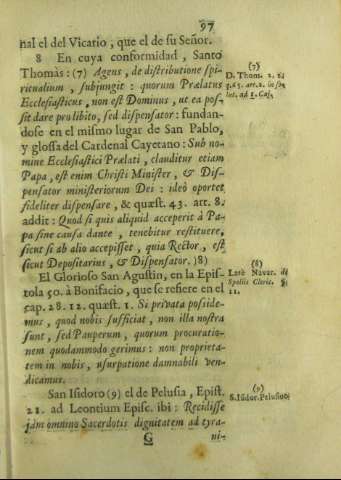 97
nal el del Vicario, que el de su Señor.
8 En cuya conformidad, Santo
Thomàs: (7) Agens, de distributione spi-
ritualium, subjungit: quorum Prælatus
Ecclesiasticus, non est Dominus, ut ea pos-
sit dare pro libito, sed dispensator: fundan-
dose en el mismo lugar de San Pablo,
y glossa del Cardenal Cayetano: Sub no-
mine Ecclesiastici Prælati, clauditur etiam
Papa, est enim Christi Minister, & Dis-
pensator ministeriorum Dei: ideò oportet
fideliter dispensare, & quæst. 43. art. 8.
addit: Quod si quis aliquid acceperit à Pa-
pa sine causa dante, tenebitur restituere,
sicut si ab alio accepisset, quia Rector, est
sicut Depositarius, & Dispensator. )8)
El Glorioso San Agustin, en la Epis-
tola 50. à Bonifacio, que se refiere en el
cap. 28. 12. quæst. 1. Si privata posside-
mus, quod nobis sufficiat, non illa nostra
sunt, sed Pauperum, quorum procuratio-
nem quodammodo gerimus: non proprieta-
tem in nobis, usurpatione damnabili ven-
dicamus.
San Isidoro (9) el de Pelusia, Epist.
21. ad Leontium Episc. ibi: Recidisse
jam omnino Sacerdotis dignitatem ad tyra-
G ni-
(7)
D. Thom. 2. 2.
q. 63. art. 2. in
& ad 1. Caj.
(8)
Latè Navar. de
Spoliis Cleric. §
11.
(9)
S. Isidor. Pelusiot.